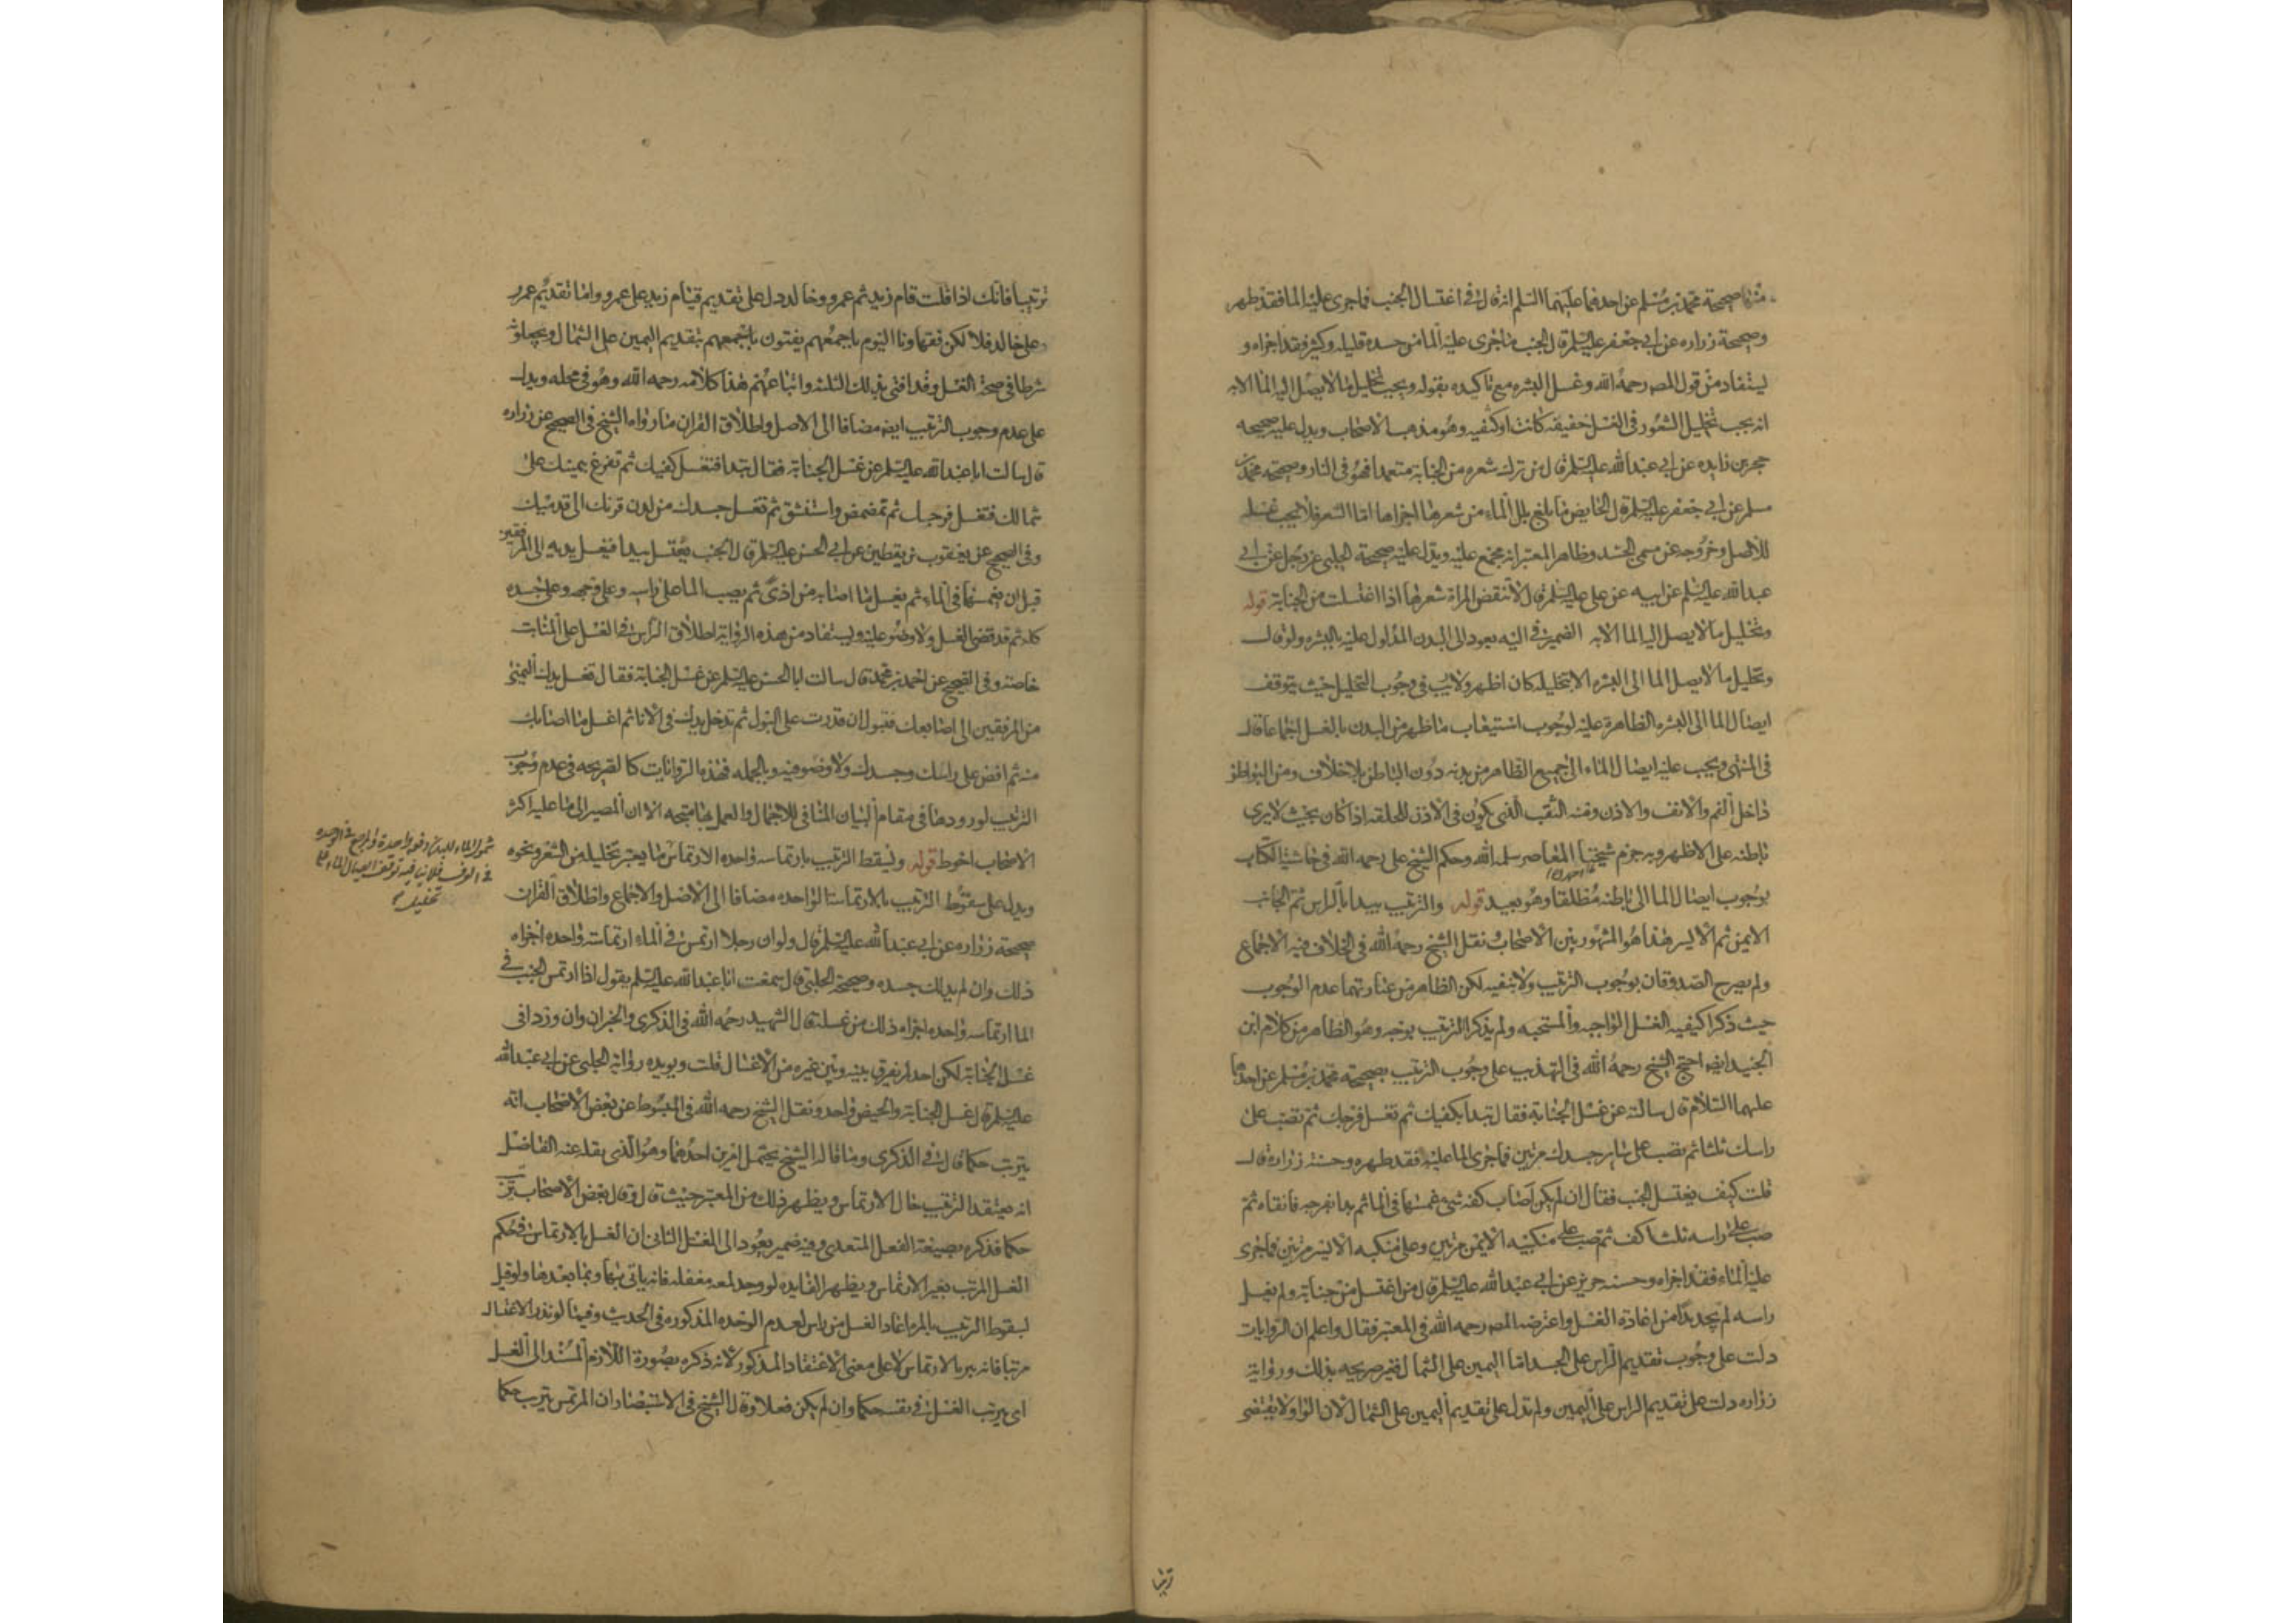 منها صحيحة محمد بن مسلم عن احدهما عليهما السلم انه قال في اغتسال الجنب فما جرى عليه الما فقد طهر
وصحيحة زراره عن ابي جعفر عليه السلم قال الجنب ما جرى عليه الما من جسده قليله وكثيره فقد اجزاه و
يستفاد من قول المص رحمه الله وغسل البشره مع تاكيده بقوله ويجب تخليل ما لا يصل اليه الما الا به
انه يجب تخليل الشعور في الغسل خفيفه كانت او كثيفه وهو مذهب الاصحاب ويدل عليه صحيحه
حجر بن زايده عن ابي عبد الله عليه السلم قال من ترك شعره من الجنابة متعمدا فهو في النار وصحيحه محمد بن
مسلم عن ابي جعفر عليه السلم قال الحايض ما بلغ بلل الماء من شعرها اجزاها اما الشعر فلا يجب غسله
للاصل وخروجه عن مسمى الجسد وظاهر المعتبر انه مجمع عليه ويدل عليه صحيحة الحلبي عن رجل عن ابي
عبد الله عليه السلم عن ابيه عن علي عليه السلم قال لا تنقض المراة شعرها اذا اغتسلت من الجنابة قوله
وتخليل ما لا يصل اليه الما الا به الضمير في اليه يعود الى البدن المدلول عليه بالبشره ولو قال
وتخليل ما لا يصل الما الى البشره الا بتخليله كان اظهر ولا ريب في وجوب التخليل حيث يتوقف
ايصال الما الى البشره الظاهرة عليه لوجوب استيعاب ما ظهر من البدن بالغسل اجماعا قال
في المنتهى ويجب عليه ايصال الماء الى جميع الظاهر من بدنه دون الباطن بلا خلاف ومن البواطن
داخل الفم والانف والاذن ومنه الثقب الذي يكون في الاذن للحلقه اذا كان بحيث لا يرى
باطنه على الاظهر وبه جزم شيخنا المعاصر سلمه الله وحكم الشيخ علي رحمه الله في حاشية الكتاب
بوجوب ايصال الما الى باطنه مطلقا وهو بعيد قوله والترتيب يبدا بالراس ثم الجانب
الايمن ثم الايسر هذا هو المشهور بين الاصحاب ونقل الشيخ رحمه الله في الخلاف فيه الاجماع
ولم يصرح الصدوقان بوجوب الترتيب ولا بنفيه لكن الظاهر من عبارتهما عدم الوجوب
حيث ذكرا كيفيه الغسل الواجبه والمستحبه ولم يذكرا الترتيب بوجه وهو الظاهر من كلام ابن
الجنيد ايضا احتج الشيخ رحمه الله في التهذيب على وجوب الترتيب بصحيحه محمد بن مسلم عن احدهما
عليهما السلام قال سالته عن غسل الجنابة فقال تبدا بكفيك ثم تغسل فرجك ثم تصب على
راسك ثلثا ثم تصب على ساير جسدك مرتين فما جرى الما عليه فقد طهره وحسنة زراره قال
قلت كيف يغتسل الجنب فقال ان لم يكن اصاب كفه شئ غمسها في الما ثم بدا بفرجه فانقاه ثم
صب على راسه ثلث اكف ثم صب على منكبه الايمن مرتين وعلى منكبه الايسر مرتين فما جرى
عليه الماء فقد اجزاه وحسنه حريز عن ابي عبد الله عليه السلم قال من اغتسل من جنابة ولم يغسل
راسه لم يجد بدا من اعادة الغسل واعترضه المص رحمه الله في المعتبر فقال واعلم ان الروايات
دلت على وجوب تقديم الراس على الجسد اما اليمين على الشمال فغير صريحه بذلك ورواية
زراره دلت على تقديم الراس على اليمين ولم تدل على تقديم اليمين على الشمال لان الواو لا يقتضي
ترتيبا فانك اذا قلت قام زيد ثم عمرو وخالد دل على تقديم قيام زيد على عمرو واما تقديم عمرو
على خالد فلا لكن فقهاونا اليوم باجمعهم يفتون بتقديم اليمين على الشمال ويجعلونه
شرطا في صحة الغسل وقد افتى بذلك الثلثه واتباعهم هذا كلامه رحمه الله وهو في محله ويدل
على عدم وجوب الترتيب ايضا مضافا الى الاصل واطلاق القران ما رواه الشيخ في الصحيح عن زراره
قال سالت ابا عبد الله عليه السلم عن غسل الجنابة فقال تبدا فتغسل كفيك ثم تفرغ بيمينك على
شمالك فتغسل فرجك ثم تمضمض واستنشق ثم تغسل جسدك من لدن قرنك الى قدميك
وفي الصحيح عن يعقوب بن يقطين عن ابي الحسن عليه السلم قال الجنب يغتسل يبدا فيغسل يديه الى المرفقين
قبل ان يغمسها في الماء ثم يغسل ما اصابه من اذى ثم يصب الما على راسه وعلى وجهه وعلى جسده
كله ثم قد قضى الغسل ولا وضو عليه ويستفاد من هذه الرواية اطلاق الراس في الغسل على المنابت
خاصة وفي الصحيح عن احمد بن محمد قال سالت ابا الحسن عليه السلم عن غسل الجنابة فقال تغسل يدك اليمنى
من المرفقين الى اصابعك فتبول ان قدرت على البول ثم تدخل يدك في الانا ثم اغسل ما اصابك
منه ثم افض على راسك وجسدك ولا وضو فيه وبالجمله فهذه الروايات كالصريحه في عدم وجوب
الترتيب لورودها في مقام البيان المنافي للاجمال والعمل بها متجه الا ان المصير الى ما عليه اكثر
الاصحاب احوط قوله ويسقط الترتيب بارتماسه واحده الارتماس ما يعتبر تخليله من الشعر ونحوه
ويدل على سقوط الترتيب بالارتماسة الواحده مضافا الى الاصل والاجماع واطلاق القران
صحيحة زراره عن ابي عبد الله عليه السلم قال ولو ان رجلا ارتمس في الماء ارتماسة واحده اجزاه
ذلك وان لم يدلك جسده وصحيحة الحلبي قال سمعت ابا عبد الله عليه السلم يقول اذا ارتمس الجنب في
الما ارتماسه واحده اجزاه ذلك من غسله قال الشهيد رحمه الله في الذكرى والخبران وان وردا في
غسل الجنابة لكن احد لم يفرق بينه وبين غيره من الاغسال قلت ويويده رواية الحلبي عن ابي عبد الله
عليه السلم قال غسل الجنابة والحيض واحد ونقل الشيخ رحمه الله في المبسوط عن بعض الاصحاب انه
يترتب حكما قال في الذكرى وما قاله الشيخ يحتمل امرين احدهما وهو الذي نقله عنه الفاضل
انه يعتقد الترتيب حال الارتماس ويظهر ذلك من المعتبر حيث قال وقال بعض الاصحاب يرتب
حكما فذكره بصيغة الفعل المتعدي وفيه ضمير يعود الى المغتسل الثاني ان الغسل بالارتماس في حكم
الغسل المرتب بغير الارتماس ويظهر الفايده لو وجد لمعه مغفله فانه ياتي بها وبما بعدها ولو قيل
بسقوط الترتيب بالمره اعاد الغسل من راس لعدم الوحده المذكوره في الحديث وفيما لو نذر الاغتسال
مرتبا فانه يبر بالارتماس لا على معنى الاعتقاد المذكور لانه ذكره بصورة اللازم المسند الى الغسل
اى يترتب الغسل في نفسه حكما وان لم يكن فعلا وقال الشيخ في الاستبصار ان المرتمس يترتب حكما
شمول الماء للبدن دفعه واحدة
ترتيبا